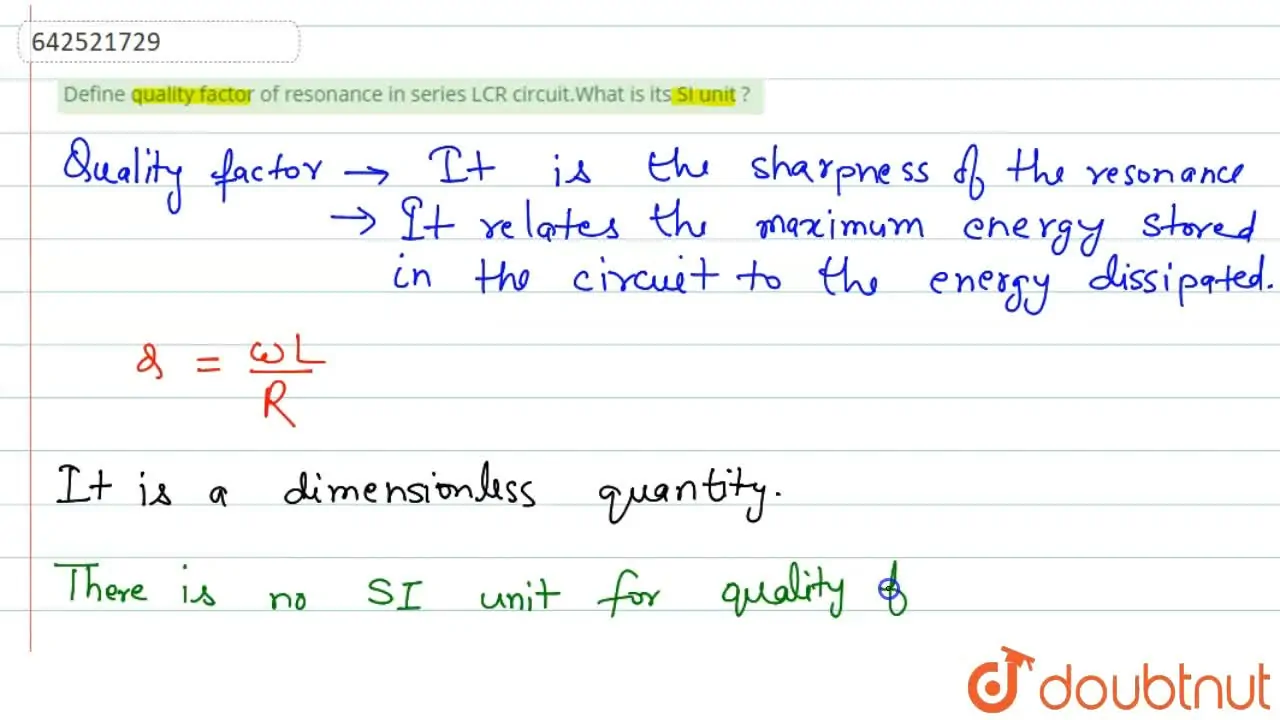 642521729
Define quality factor of resonance in series LCR circuit.What is its SI unit ?
Quality factor → It is the sharpness of the resonance
→ It relates the maximum energy stored
in the circuit to the energy dissipated.
Q = ωL
R
It is a dimensionless quantity.
There is no SI unit for quality f
doubtnut